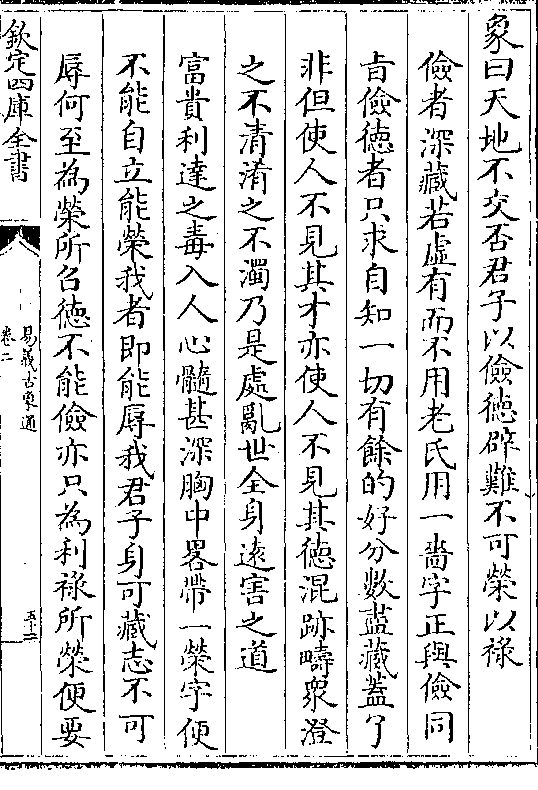 象曰天地不交否君子以儉徳辟難不可榮以祿
儉者深藏若虛有而不用老氏用一嗇字正與儉同
㫖儉徳者只求自知一切有餘的好分數葢藏蓋了
非但使人不見其才亦使人不見其徳混跡疇衆澄
之不清淆之不濁乃是處亂世全身逺害之道
富貴利達之毒入人心髓甚深胸中畧帶一榮字便
不能自立能榮我者即能辱我君子身可藏志不可
辱何至為榮所召徳不能儉亦只為利祿所榮便要
欽定四庫全書
易義古象通
卷二
五十二